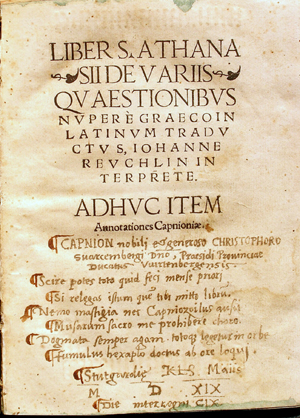 LIBER S. ATHANA
SII DE VARIIS
QVAESTIONIBVS
NVPER È GRAECO IN
LATINVM TRADV
CTVS, IOHANNE
REVCHLIN IN
TERPRETE.
ADHVC ITEM
Annotationes Capnioniæ.
CAPNION nobili & generoso CHRISTOPHORO
Suarcembergi Dno, Praesidi Provinciae
Ducatus Vuirtenbergensis
Scire potes toto quid feci mense priori
Si relegas istum que tibi mitto libru.
Nemo mastigia nec Capnioxvilus ausit
Musarum sacro me prohibere choro.
Dogmata semper agam totoq legetur in orbe
doctus ab ore loqui.
Stutgardie Maias
M D XIX
Die